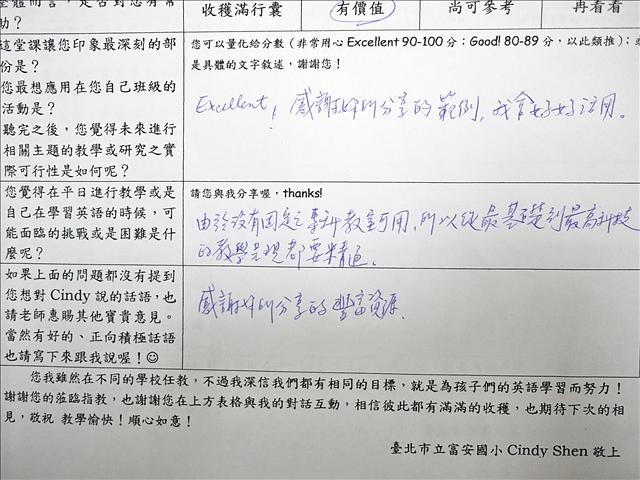 整體而言，是否對您有幫
助？
收穫滿行囊
有價值
尚可參考
再看看
這堂課讓您印象最深刻的部
份是？
您最想應用在您自己班級的
活動是？
聽完之後，您覺得未來進行
相關主題的教學或研究之實
際可行性是如何呢？
您可以量化給分數（非常用心 Excellent 90-100 分；Good! 80-89 分，以此類推）；或
是具體的文字敘述，謝謝您！
Excellent, 感謝妳所分享的範例，我會好好活用。
您覺得在平日進行教學或是
自己在學習英語的時候，可
能面臨的挑戰或是困難是什
麼呢？
請您與我分享喔，thanks!
由於沒有固定之專科教室可用，所以從最基礎到最高科技
的教學呈現都要精通。
如果上面的問題都沒有提到
您想對 Cindy 說的話語，也
請老師惠賜其他寶貴意見。
當然有好的、正向積極話語
也請寫下來跟我說喔！☺
感謝妳所分享的豐富資源.
您我雖然在不同的學校任教，不過我深信我們都有相同的目標，就是為孩子們的英語學習而努力！
謝謝您的蒞臨指教，也謝謝您在上方表格與我的對話互動，相信彼此都有滿滿的收穫，也期待下次的相
見，敬祝 教學愉快！順心如意！
臺北市立富安國小 Cindy Shen 敬上